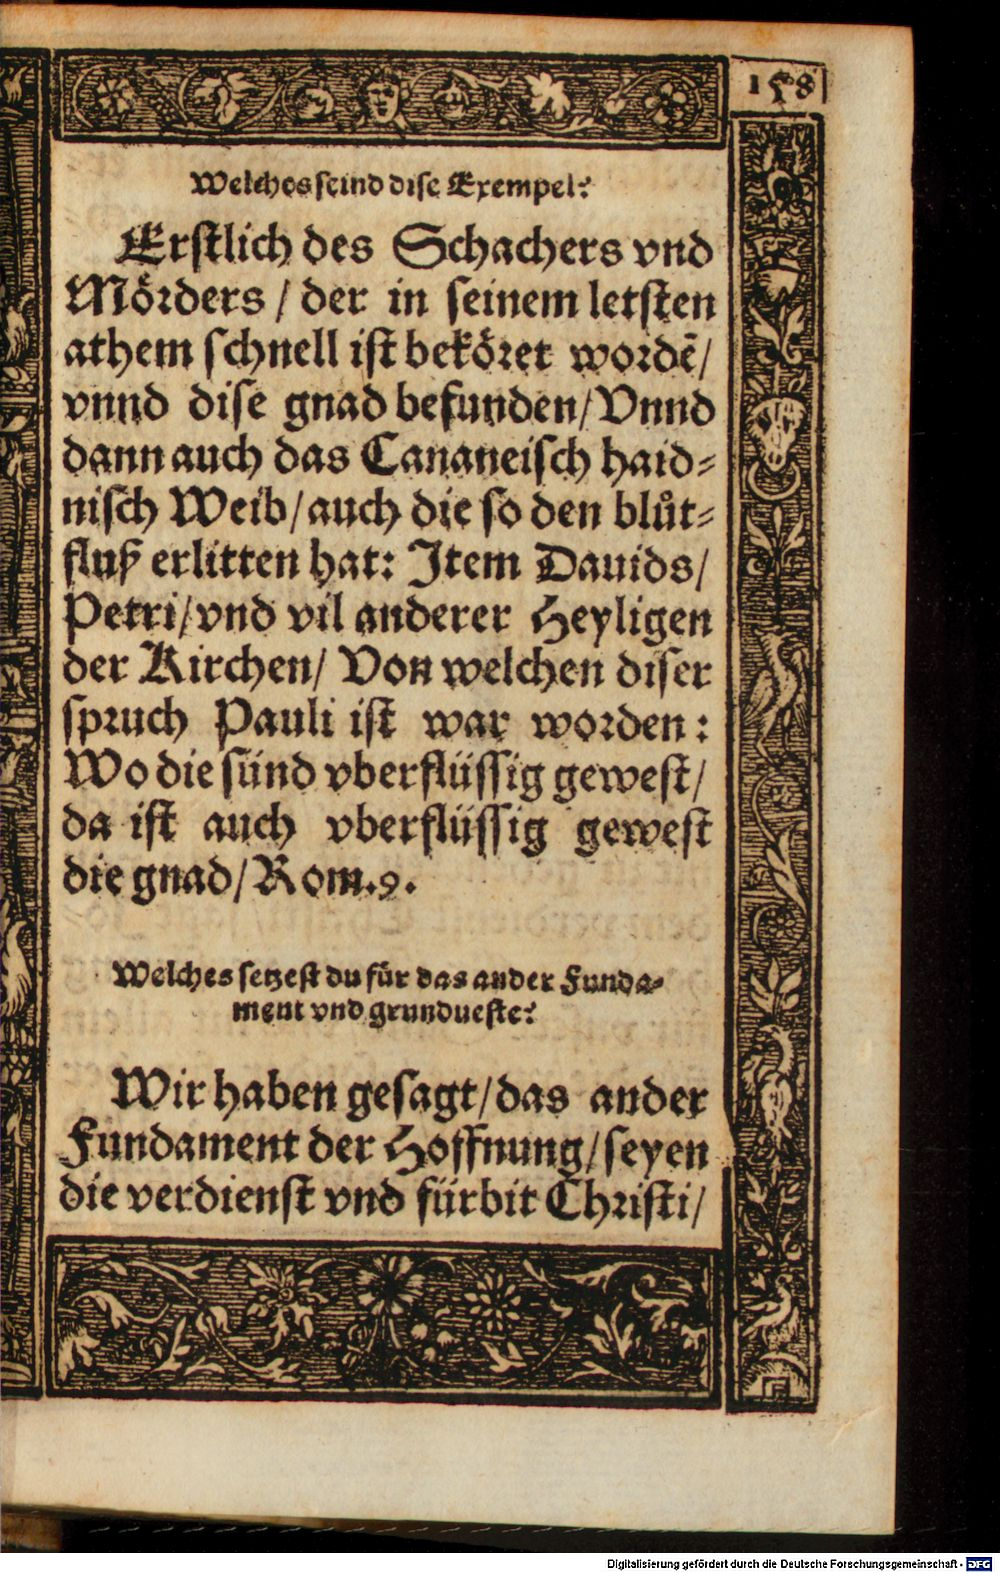 158
Welches seind dise Exempel?
Erstlich des Schachers vnd
Mörders / der in seinem letsten
athem schnell ist beköret wordē/
vnnd dise gnad befunden/ Vnnd
dann auch das Cananeisch haid⸗
nisch Weib/ auch die so den blůt⸗
fluß erlitten hat: Item Dauids/
Petri/ vnd vil anderer Heyligen
der Kirchen/ Von welchen diser
spruch Pauli ist war worden:
Wo die sünd vberflüssig gewest/
da ist auch vberflüssig gewest
die gnad/ Rom.9.
Welches setzest du für das ander Funda⸗
ment vnd grundueste?
Wir haben gesagt/ das ander
Fundament der Hoffnung/ seyen
die verdienst vnd fürbit Christi/
Digitalisierung gefördert durch die Deutsche Forschungsgemeinschaft - DFG